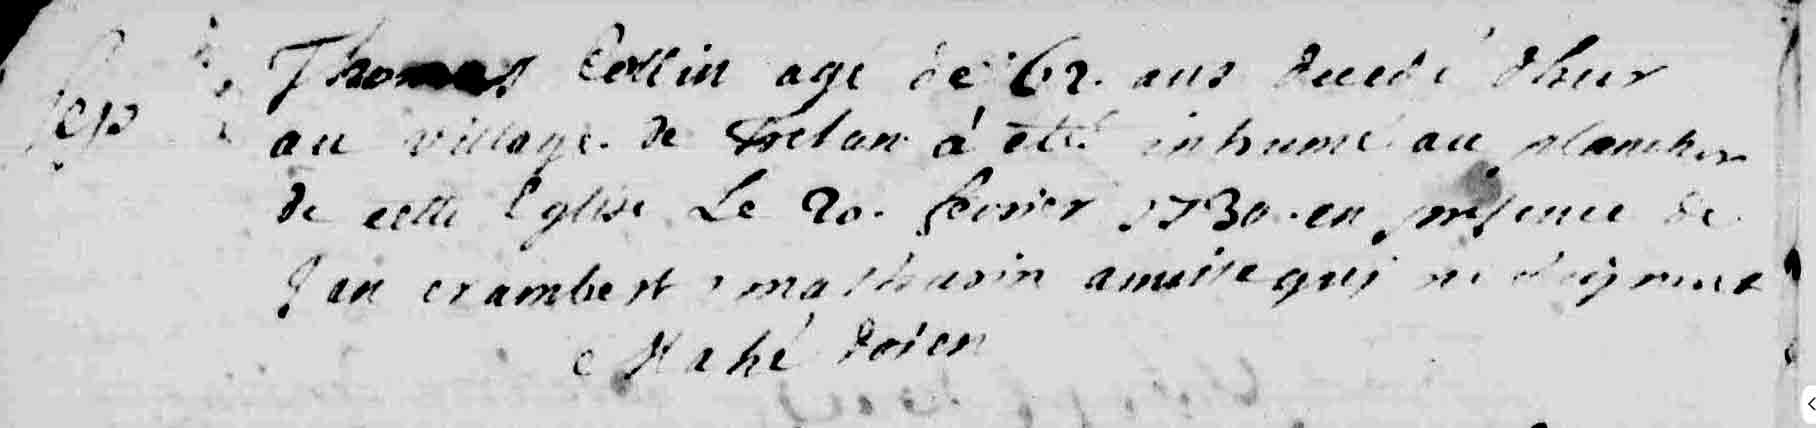 Sep
Thomas Collin agé de 62. ans decedé d'hier
au village de Trelan à eté inhumé au plancher
de cette Eglise Le 20. fevrier 1730. en presence de
Jan crambert mathurin qui ne signent
Mahé doien